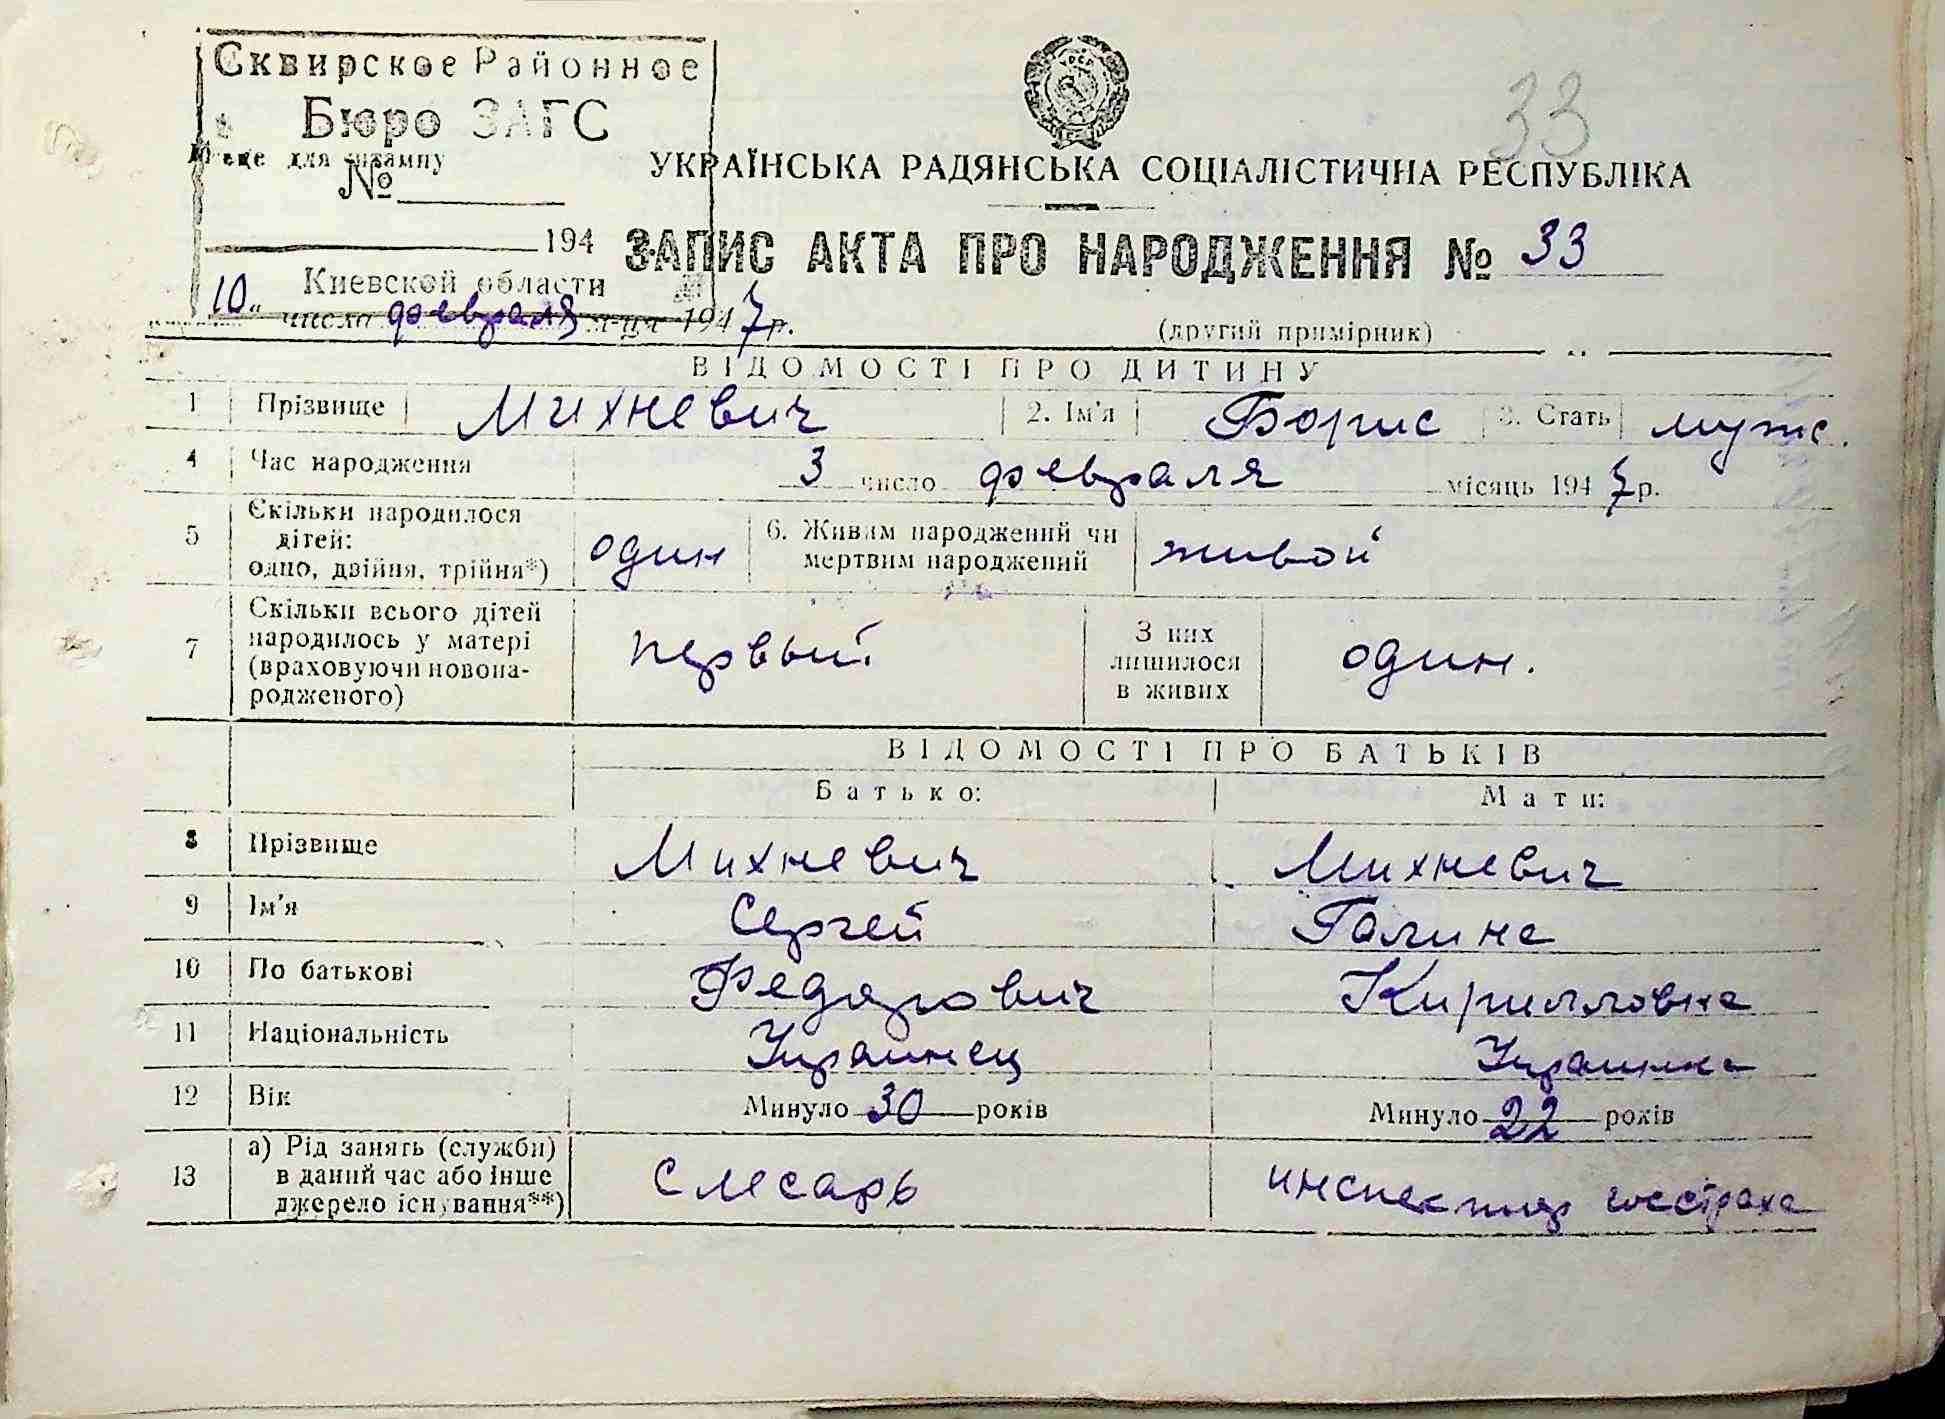 Сквирское Районное
Бюро ЗАГС
для штампу
№
194
Киевской области
33
УРСР
УКРАЇНСЬКА РАДЯНСЬКА СОЦІАЛІСТИЧНА РЕСПУБЛІКА
ЗАПИС АКТА ПРО НАРОДЖЕННЯ № 33
10 " числа февраля м-ця 1947 р.
(другий примірник)
ВІДОМОСТІ ПРО ДИТИНУ
1 Прізвище Михневич 2. Ім'я Борис 3. Стать муж.
4 Час народження 3 число февраля місяць 1947 р.
5 Скільки народилося дітей: одно, двійня, трійня*) один 6. Живим народжений чи мертвим народжений живой
7 Скільки всього дітей народилось у матері (враховуючи новона-родженого) первый З них лишилося в живих один.
ВІДОМОСТІ ПРО БАТЬКІВ
Батько: Мати:
8 Прізвище Михневич Михневич
9 Ім'я Сергей Галина
10 По батькові Федорович Кирилловна
11 Національність Украинец Украинка
12 Вік Минуло 30 років Минуло 22 років
13 а) Рід занять (служби) в даний час або інше джерело існування**) Слесарь инспектор госстраха